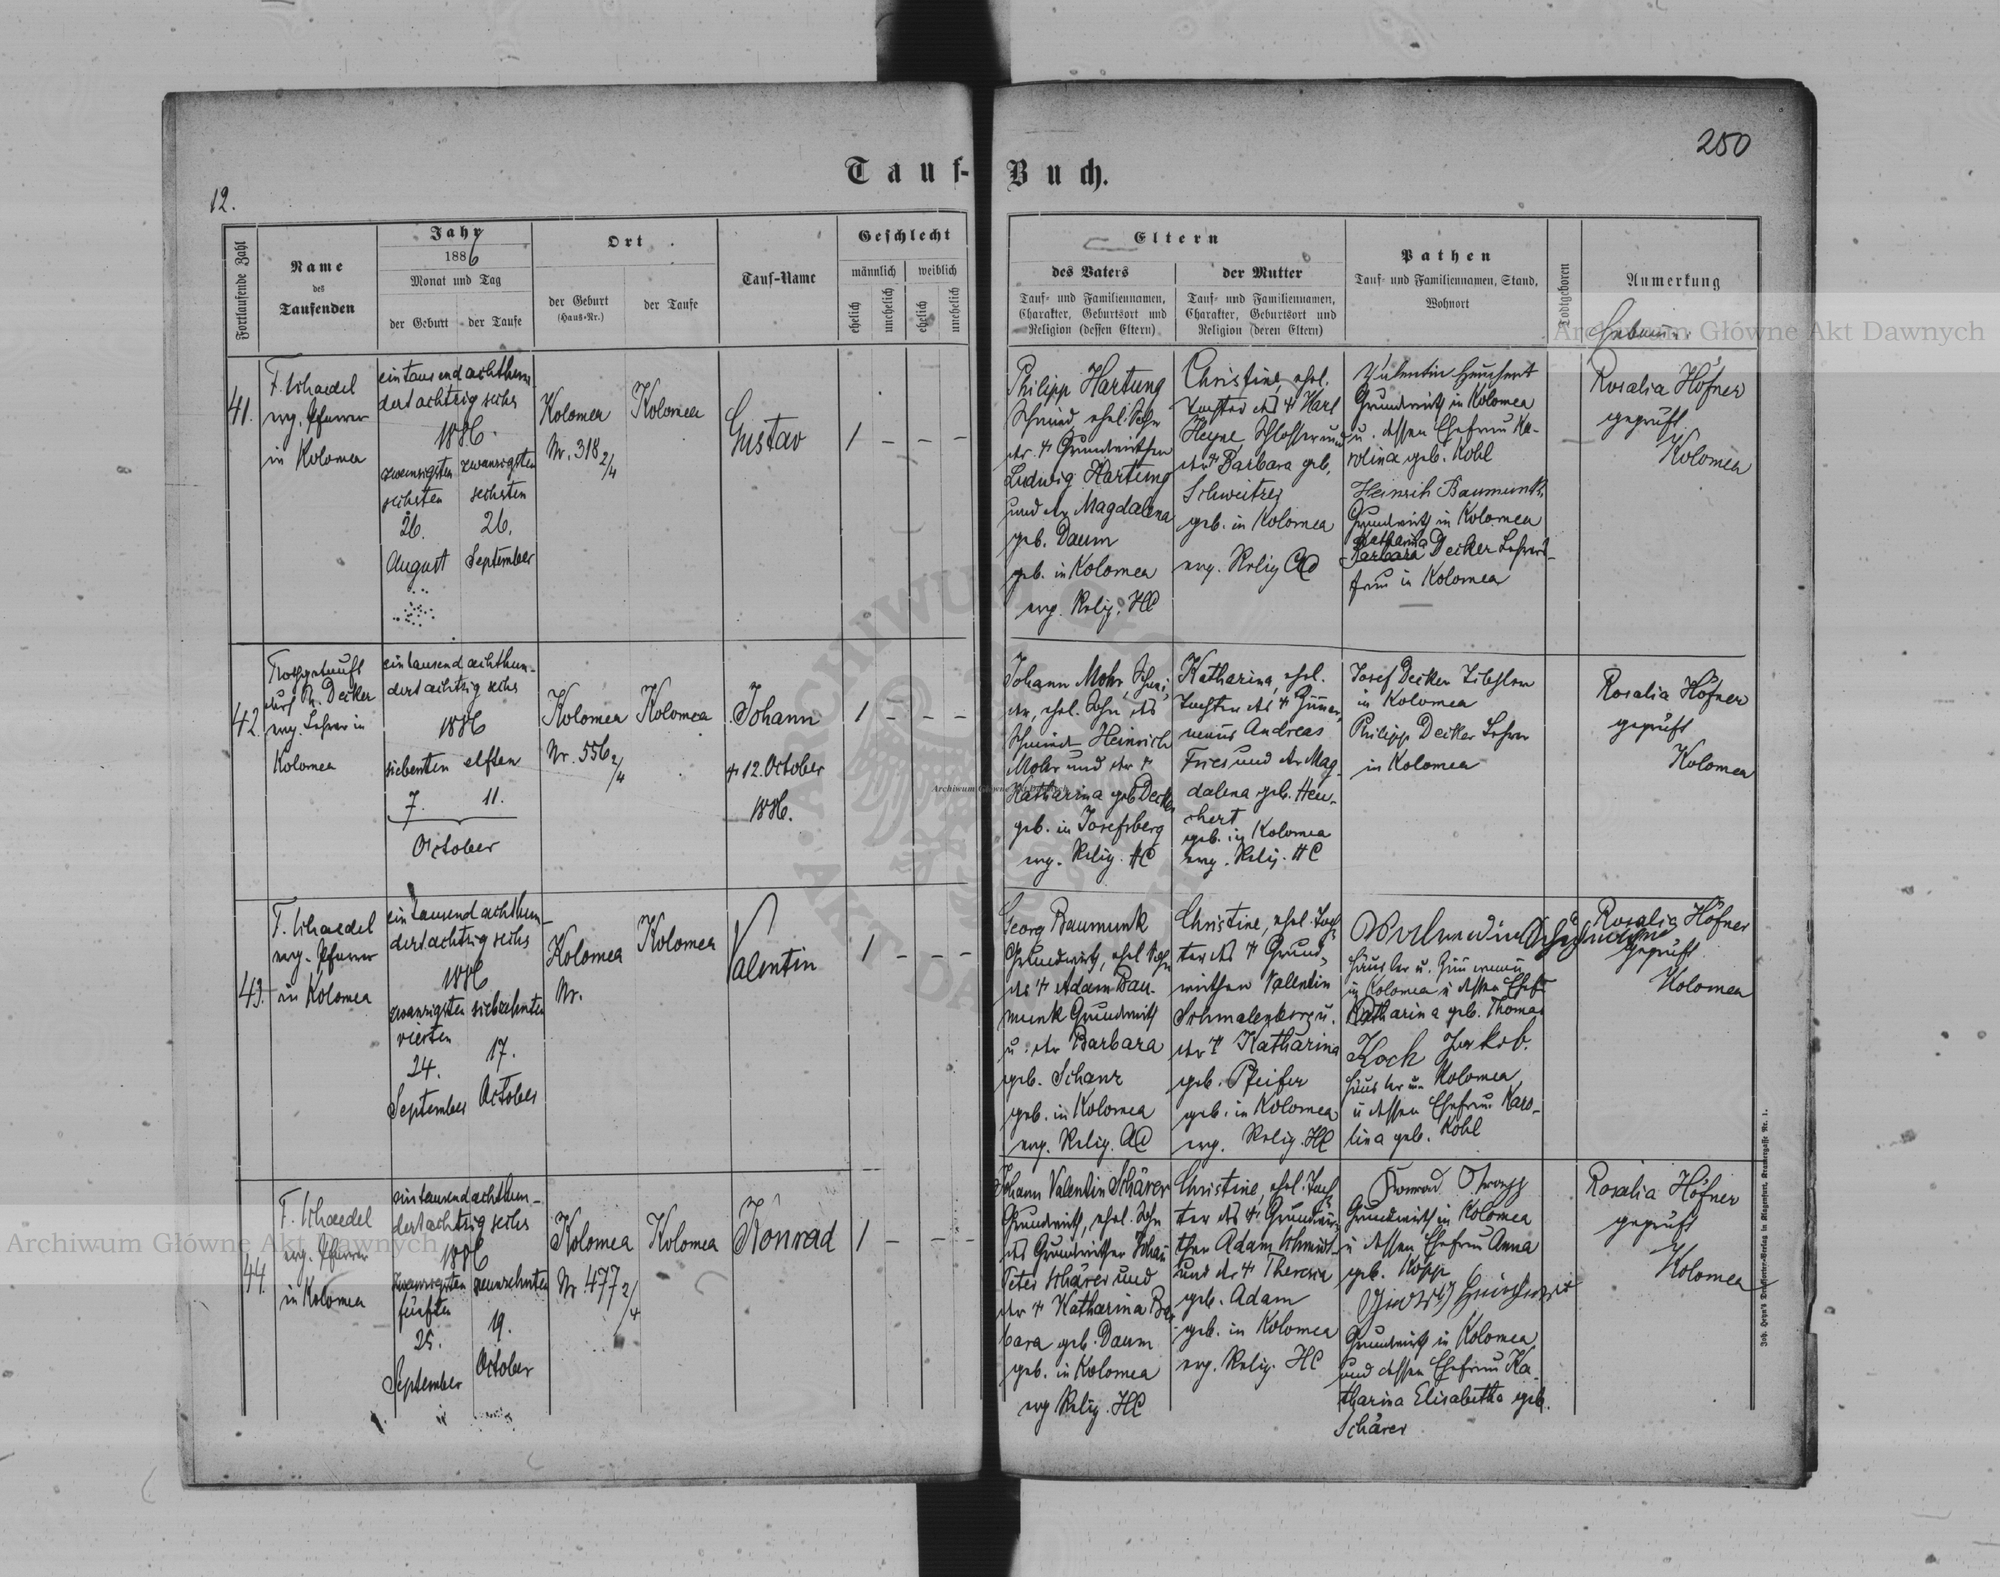 250
Tauf-Buch.
12.
Fortlaufende Zahl
Name
des
Taufenden
Jahr
1886
Monat und Tag
der Geburt
der Taufe
Ort
der Geburt
(Haus-Nr.)
der Taufe
Tauf-Name
Geschlecht
männlich
weiblich
ehelich
unehelich
ehelich
unehelich
Eltern
des Vaters
Tauf- und Familiennamen,
Charakter, Geburtsort und
Religion (dessen Eltern)
der Mutter
Tauf- und Familiennamen,
Charakter, Geburtsort und
Religion (deren Eltern)
Pathen
Tauf- und Familiennamen, Stand,
Wohnort
Todtgeboren
Anmerkung
41.
F. Schaedel
evg. Pfarrer
in Kolomea
eintausendachthun
dertachtzig sechs
1886.
zwanzigsten zwanzigsten
sechsten sechsten
26. 26.
August September
Kolomea
Nr. 318 2/4
Kolomea
Gustav
1 – – –
Philipp Hartung
Schmied, ehel. Sohn
des + Grundwirthen
Ludwig Hartung
und der Magdalena
geb. Daum
geb. in Kolomea
evg. Relig. HC
Christine, ehel.
Tochter des + Karl
Heyne, Schlosser und
der + Barbara geb.
Schweitzer
geb. in Kolomea
evg. Relig. AC
Valentin Heuchert
Grundwirth in Kolomea
u. dessen Ehefrau Ka-
rolina geb. Kohl
Heinrich Baumunk,
Grundwirth in Kolomea
Katharina
Barbara Decker Lehrers-
frau in Kolomea
Rosalia Höfner
geprüft
Kolomea
42.
Nothgetauft
durch Ph. Decker
evg. Lehrer in
Kolomea
eintausendachthun-
dertachtzig sechs
1886
siebenten elften
7. 11.
October
Kolomea
Nr. 556 2/4
Kolomea
Johann
+ 12. October
1886.
1 – – –
Johann Mohr, Schmi,
des
Schmied Heinrich
Mohr und der +
Katharina geb. Decker
geb. in Josefsberg
evg. Relig. HC
Katharina, ehel.
Tochter des + Zimmer,
manns Andreas
Fries und der Mag-
dalena geb. Heu-
chert
geb. in Kolomea
evg. Relig. HC
Josef Decker Tischler
in Kolomea
Philipp Decker Lehrer
in Kolomea
Rosalia Höfner
geprüft
Kolomea
43.
F. Schaedel
evg. Pfarrer
in Kolomea
eintausendachthun-
dertachtzig sechs
1886
zwanzigsten siebzehnten
vierten
24. 17.
September October
Kolomea
Nr.
Kolomea
Valentin
1 – – –
Georg Baumunk
Grundwirth, ehel. Sohn
des + Adam Bau-
munk Grundwirth
u. der Barbara
geb. Schanz
geb. in Kolomea
evg. Relig. AC
Christine, ehel. Toch
ter des + Grund,
wirthen Valentin
Schmalenberg u.
der + Katharina
geb. Pfeifer
geb. in Kolomea
evg. Relig. HC
Häusler u. Zimmermann
in Kolomea u dessen Ehefr
Katharina geb. Thomas
Koch Jakob.
Häusler in Kolomea
u dessen Ehefrau Karo-
lina geb. Kohl
Rosalia Höfner
geprüft
Kolomea
44.
F. Schaedel
evg. Pfarrer
in Kolomea
eintausendachthun-
dertachtzig sechs
1886
zwanzigsten neunzehnten
fünften
25. 19.
September October
Kolomea
Nr. 477 2/4
Kolomea
Konrad
1 – – –
Johann Valentin Schärer
Grundwirth, ehel. Sohn
des Grundwirthen Johan
Peter Schärer und
der + Katharina Bar
bara geb. Daum
geb. in Kolomea
evg Relig. HC
Christine, ehel. Toch
ter des + Grundwir
then Adam Schmidt
und der + Theresia
geb. Adam
geb. in Kolomea
evg. Relig. HC
Konrad
Grundwirth in Kolomea
u dessen Ehefrau Anna
geb. Kopp
Grundwirth in Kolomea
und dessen Ehefrau Ka-
tharina Elisabetha geb.
Schärer
Rosalia Höfner
geprüft
Kolomea
Archiwum Główne Akt Dawnych
Archiwum Główne Akt Dawnych
Archiwum Główne Akt Dawnych